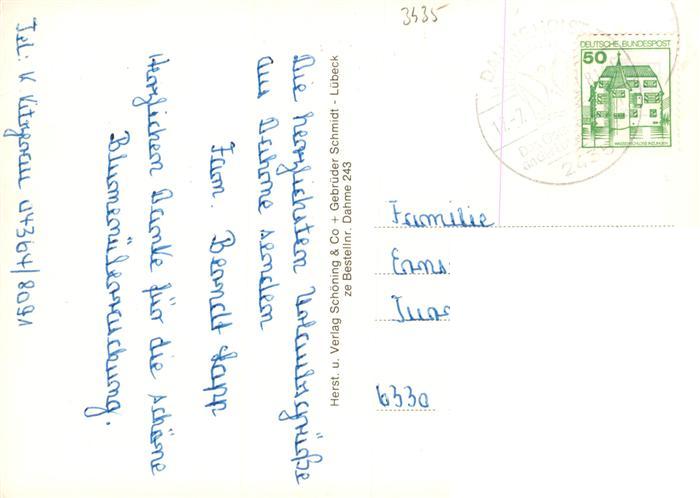 3435
DEUTSCHE BUNDESPOST
50
WASSERSCHLOSS INZLINGEN
2435
Die herzlichsten Urlaubsgrüße
aus Dahme senden
Fam. Berndt Rapp
Herzlichen Danke für die schöne
Blumenüberraschung.
Tel: 04364/8091
Herst. u. Verlag Schöning & Co + Gebrüder Schmidt - Lübeck
ze Bestellnr. Dahme 243
Familie
Erns
6330